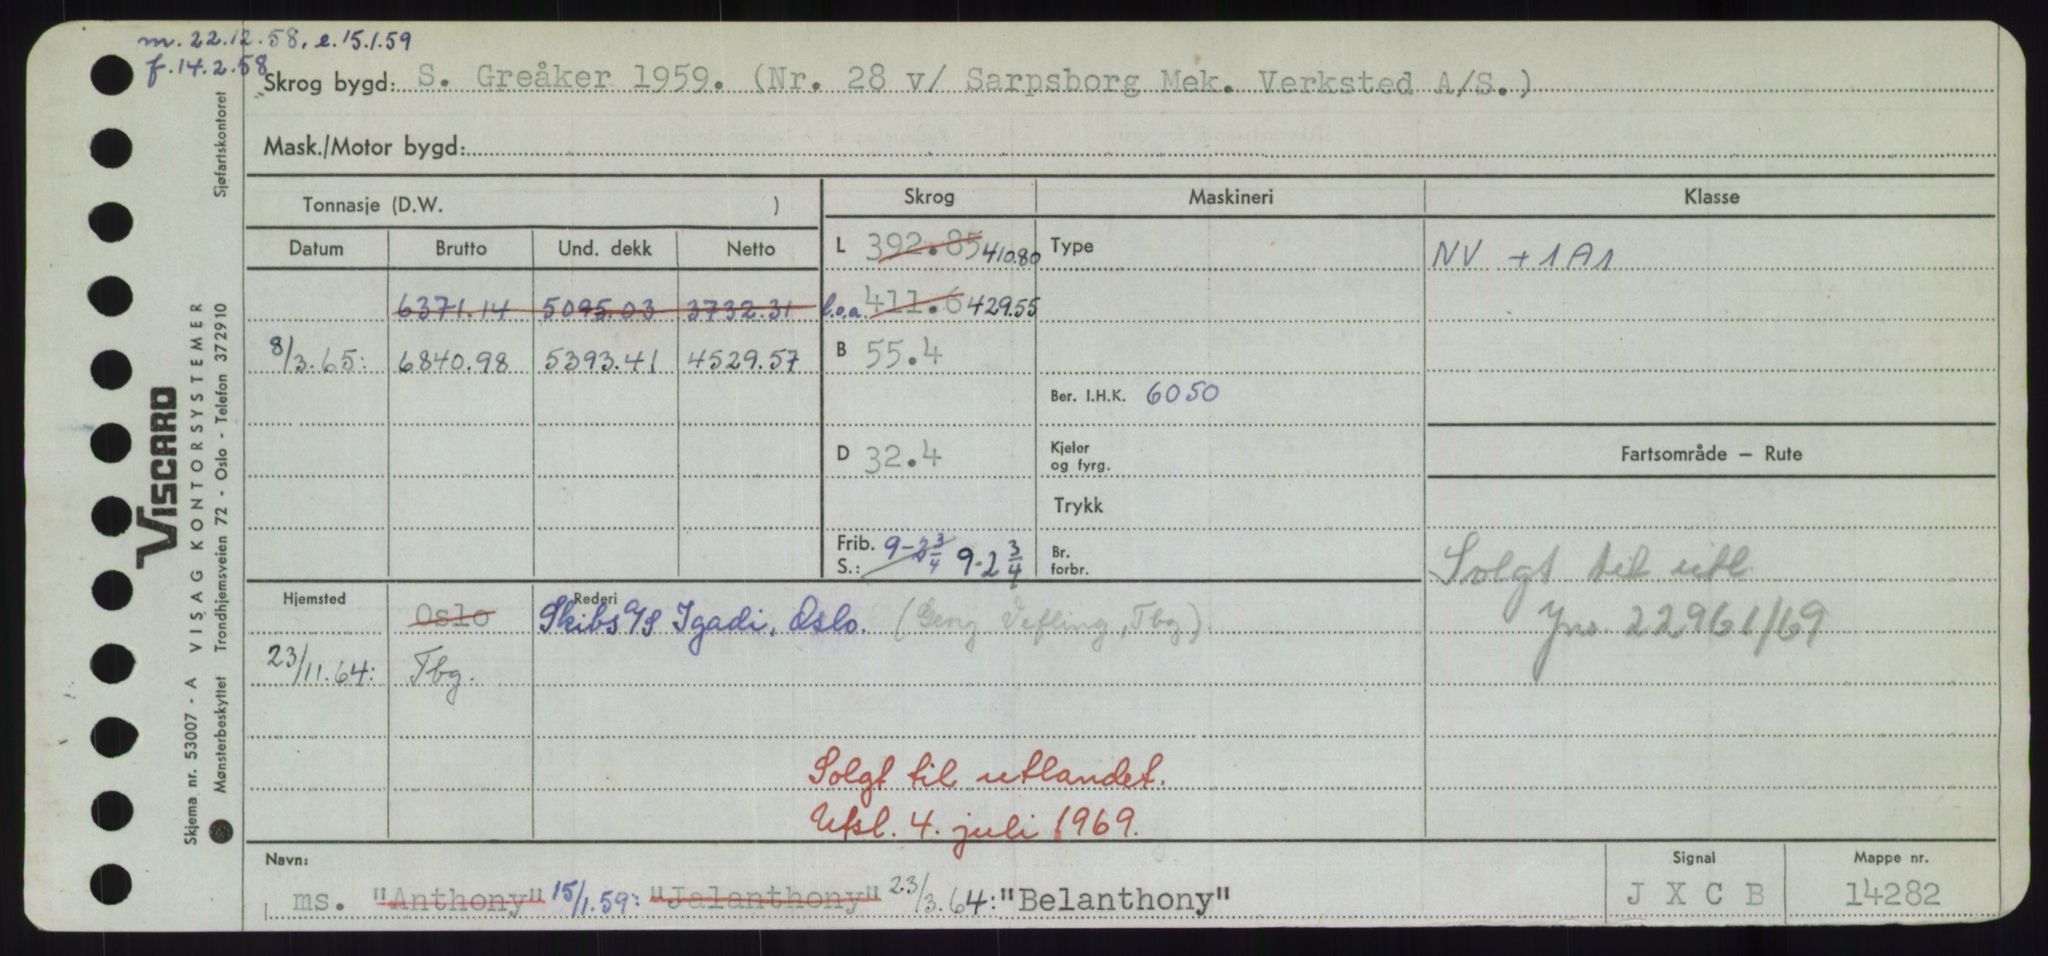 m. 22.12.58, e. 15.1.59
f. 14.2.58
Skrog bygd: S. Greåker 1959. (Nr. 28 v/ Sarpsborg Mek. Verksted A/S.)
Mask./Motor bygd:
Tonnasje (D.W. )
Skrog Maskineri Klasse
Datum Brutto Und. dekk Netto
L 392.85 410.80 Type NV +1A1
6371.14 5095.03 3732.31 l.o.a. 411.6 429.55
8/3.65: 6840.98 5393.41 4529.57 B 55.4
Ber. I.H.K. 6050
D 32.4 Kjeler og fyrg. Fartsområde – Rute
Trykk
Frib. S.: 9-2 3/4 9-2 3/4 Br. forbr. Solgt til utl
Hjemsted Oslo Rederi Skibs A/S Igadi, Oslo. (Georg Vefling, Tbg) Jno. 22961/69
23/11.64: Tbg.
Solgt til utlandet.
Utsl. 4. juli 1969.
Navn: Signal Mappe nr.
ms. "Anthony" 15/1.59: "Jalanthony" 23/3.64: "Belanthony" J X C B 14282
VISCARD
Skjema nr. 53007 - A VISAG KONTORSYSTEMER
Mønsterbeskyttet Trondhjemsveien 72 - Oslo - Telefon 372910 Sjøfartskontoret